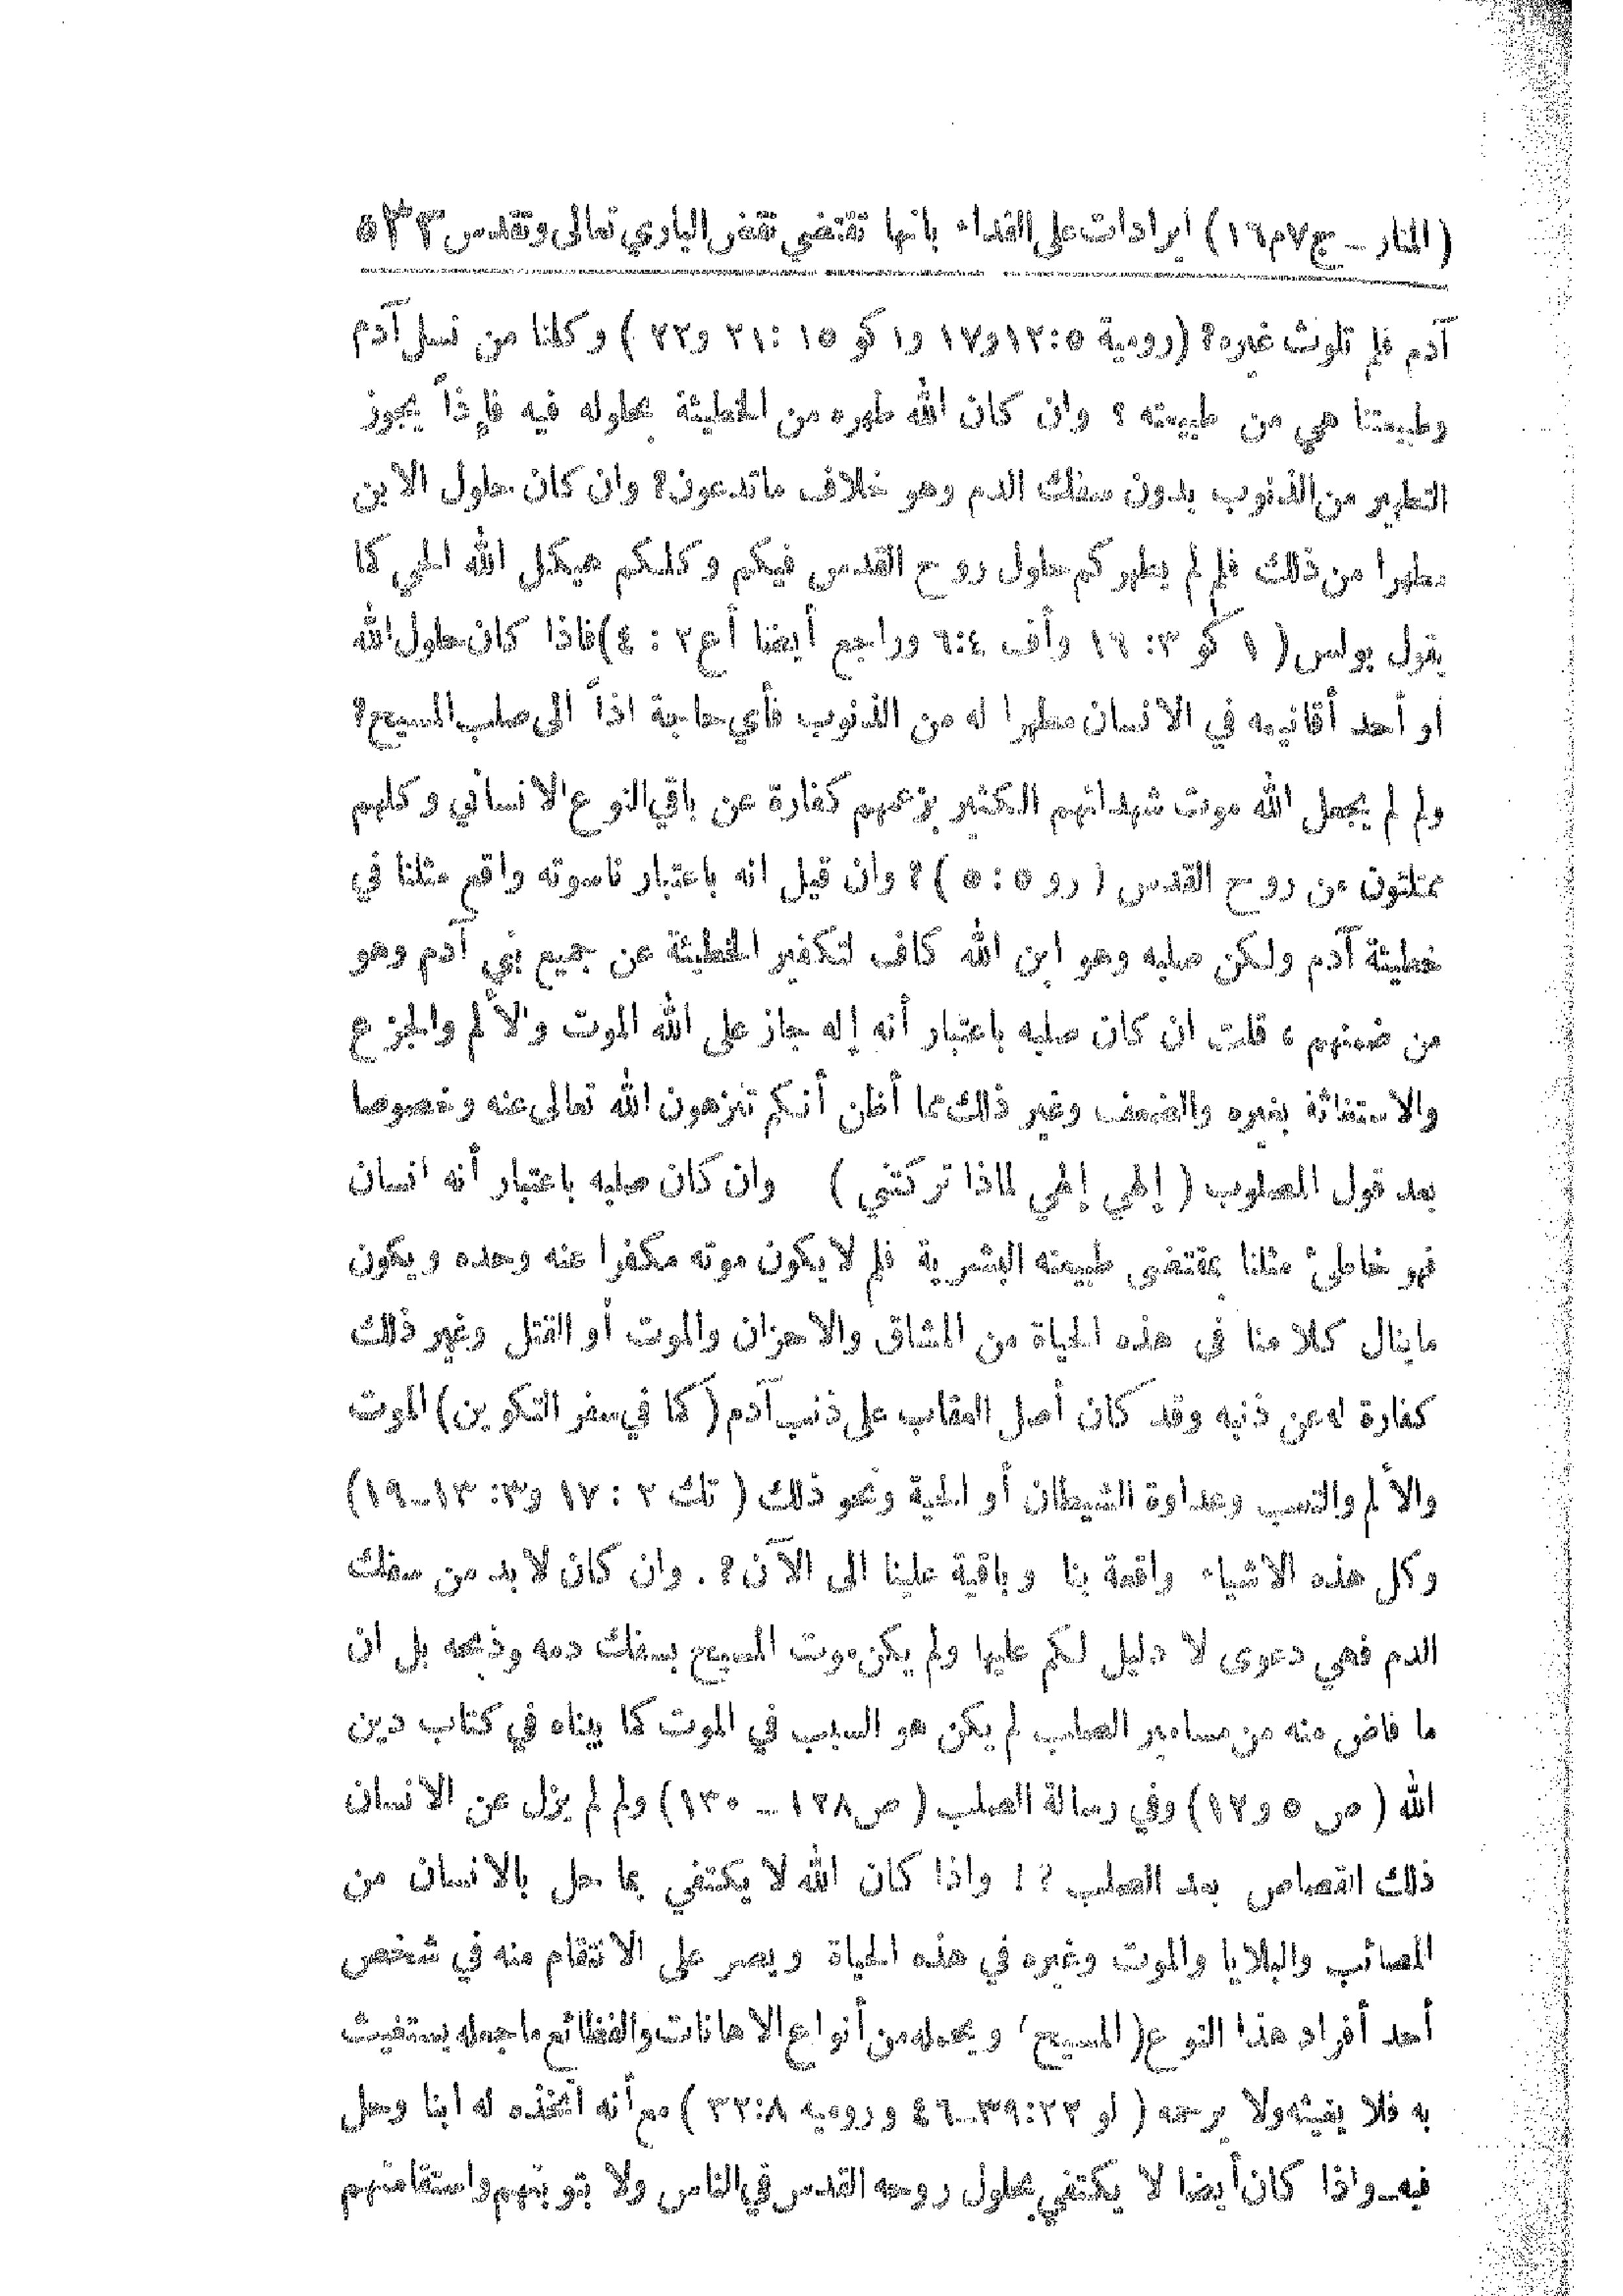 (المنار – ج٧م١٦) ايرادات على الفداء بانها تقتضي الباري تعالى وتقدس ٥٣٣
آدم فلم تلوث غيره؟ (رومية ٥:١٢و١٧ و١ كو ١٥ :٢١ و٢٢ ) وكلنا من نسل آدم
وطبيعتنا هي من طبيعته ؟ وان كان الله طهره من الخطيئة بحلوله فيه فإذاً يجوز
التطهير من الذنوب بدون سفك الدم وهو خلاف ماتدعون؟ وان كان حلول الابن
مطهرا من ذلك فلم لم يطهركم حلول روح القدس فيكم وكلكم هيكل الله الحي كما
يقول بولس ( ١ كو ٣: ١٦ وأف ٤:٦ وراجع أيضا أع ٢ : ٤)فاذا كان حلول الله
أو أحد أقانيمه في الانسان مطهرا له من الذنوب فأي حاجة اذاً الى صلب المسيح؟
ولم لم يجعل الله موت شهدائهم الكثير بزعمهم كفارة عن باقي النوع الانساني وكلهم
ممتلئون من روح القدس ( رو ٥ : ٥ ) ؟ وان قيل انه باعتبار ناسوته واقع مثلنا في
خطيئة آدم ولكن صلبه وهو ابن الله كاف لتكفير الخطيئة عن جميع بني آدم وهو
من ضمنهم ، قلت ان كان صلبه باعتبار أنه إله جاز على الله الموت والألم والجزع
والاستغاثة بغيره والضعف وغير ذلك مما أظن أنكم تنزهون الله تعالى عنه وخصوصا
بعد قول المصلوب ( إلهي إلهي لماذا تركتني ) وان كان صلبه باعتبار أنه انسان
فهو خاطئ مثلنا بمقتضى طبيعته البشرية فلم لا يكون موته مكفرا عنه وحده ويكون
ماينال كلا منا في هذه الحياة من المشاق والاحزان والموت أو القتل وغير ذلك
كفارة له عن ذنبه وقد كان أصل العقاب على ذنب آدم ( كما في سفر التكوين ) الموت
والألم والتعب وعداوة الشيطان أو الحية ونحو ذلك ( تك ٢ : ١٧ و٣: ١٣–١٩)
وكل هذه الاشياء واقعة بنا وباقية علينا الى الآن؟ . وان كان لابد من سفك
الدم فهي دعوى لا دليل لكم عليها ولم يكن موت المسيح بسفك دمه وذبحه بل ان
ما فاض منه من مسامير الصلب لم يكن هو السبب في الموت كما بيناه في كتاب دين
الله ( ص ٥ و١٢) وفي رسالة الصلب ( ص١٢٨ – ١٣٠) ولم لم يزل عن الانسان
ذلك القصاص بعد الصلب ؟ ! واذا كان الله لا يكتفي بما حل بالانسان من
المصائب والبلايا والموت وغيره في هذه الحياة ويصر على الانتقام منه في شخص
أحد أفراد هذا النوع ( المسيح ) ويحمله من أنواع الاهانات والفظائع ما جعله يستغيث
به فلا يغيثه ولا يرحمه ( لو ٢٣:٣٩–٤٦ ورومية ٨:٣٢ ) مع أنه اتخذه له ابنا وحل
فيه–واذا كان أيضا لا يكتفي بحلول روحه القدس في الناس ولا بتوبتهم واستقامتهم